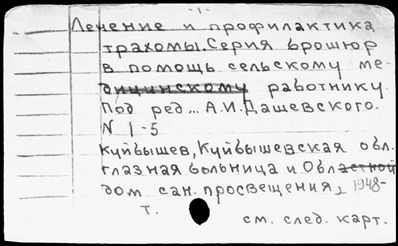 - 1 -
Лечение и профилактика
трахомы. Серия брошюр
в помощь сельскому ме-
дицинскому работнику.
Под ред... А.И.Дашевского.
N 1-5
Куйбышев, Куйбышевская обл.
глазная больница и Областной
дом сан. просвещения, 1948-
т.
см. след. карт.